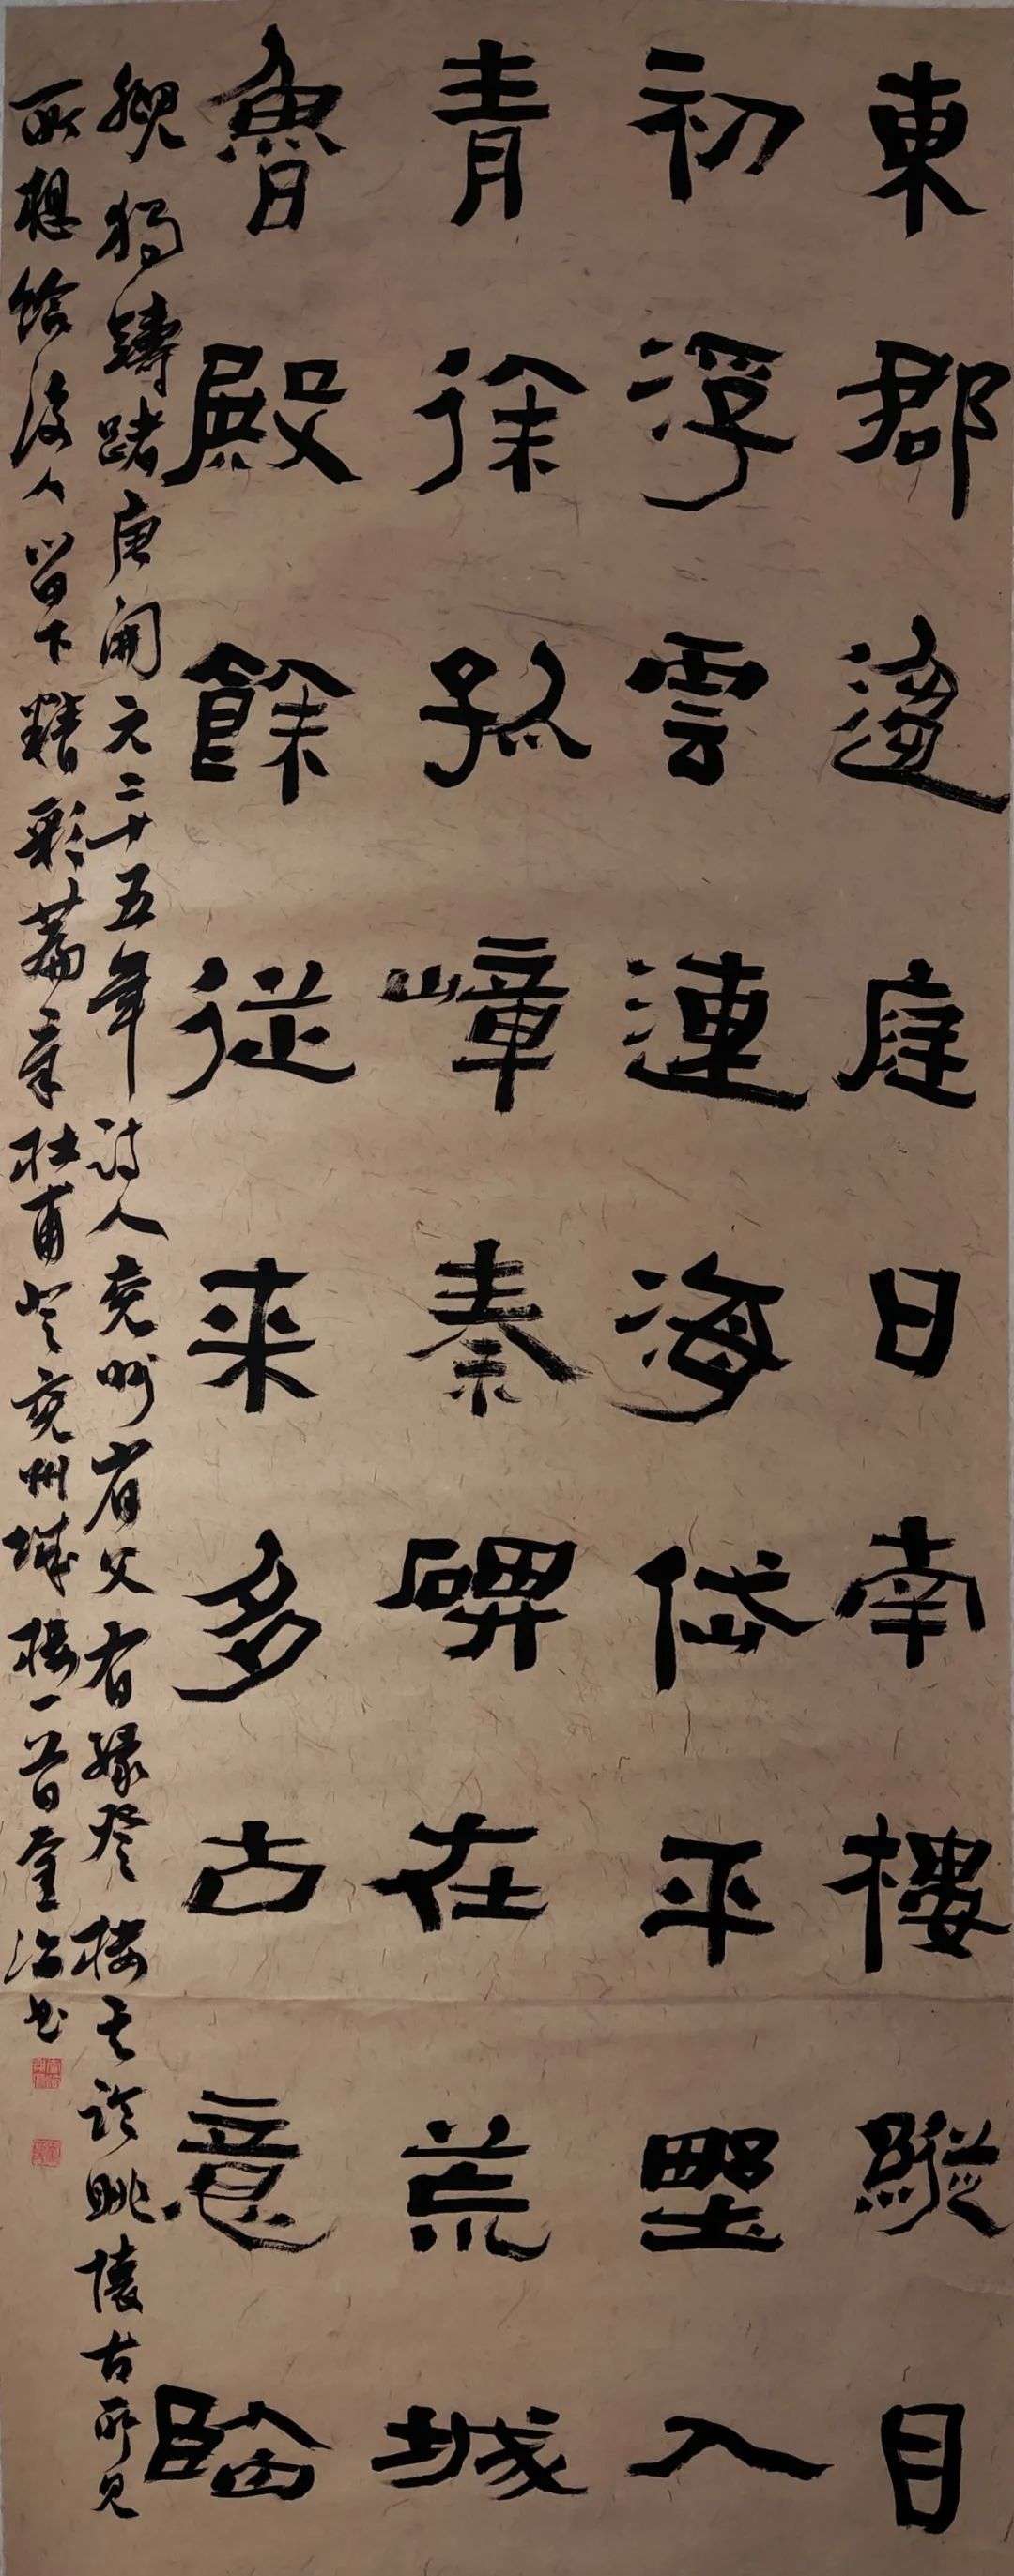 東郡趨庭日南樓縱目
初浮雲連海岱平野入
青徐孤嶂秦碑在荒城
魯殿餘從來多古意臨
眺獨躊躇唐開元二十五年詩人兖州省父有緣登樓之際眺懷古所見
所想給後人留下精彩篇章杜甫登兖州城樓一首 書